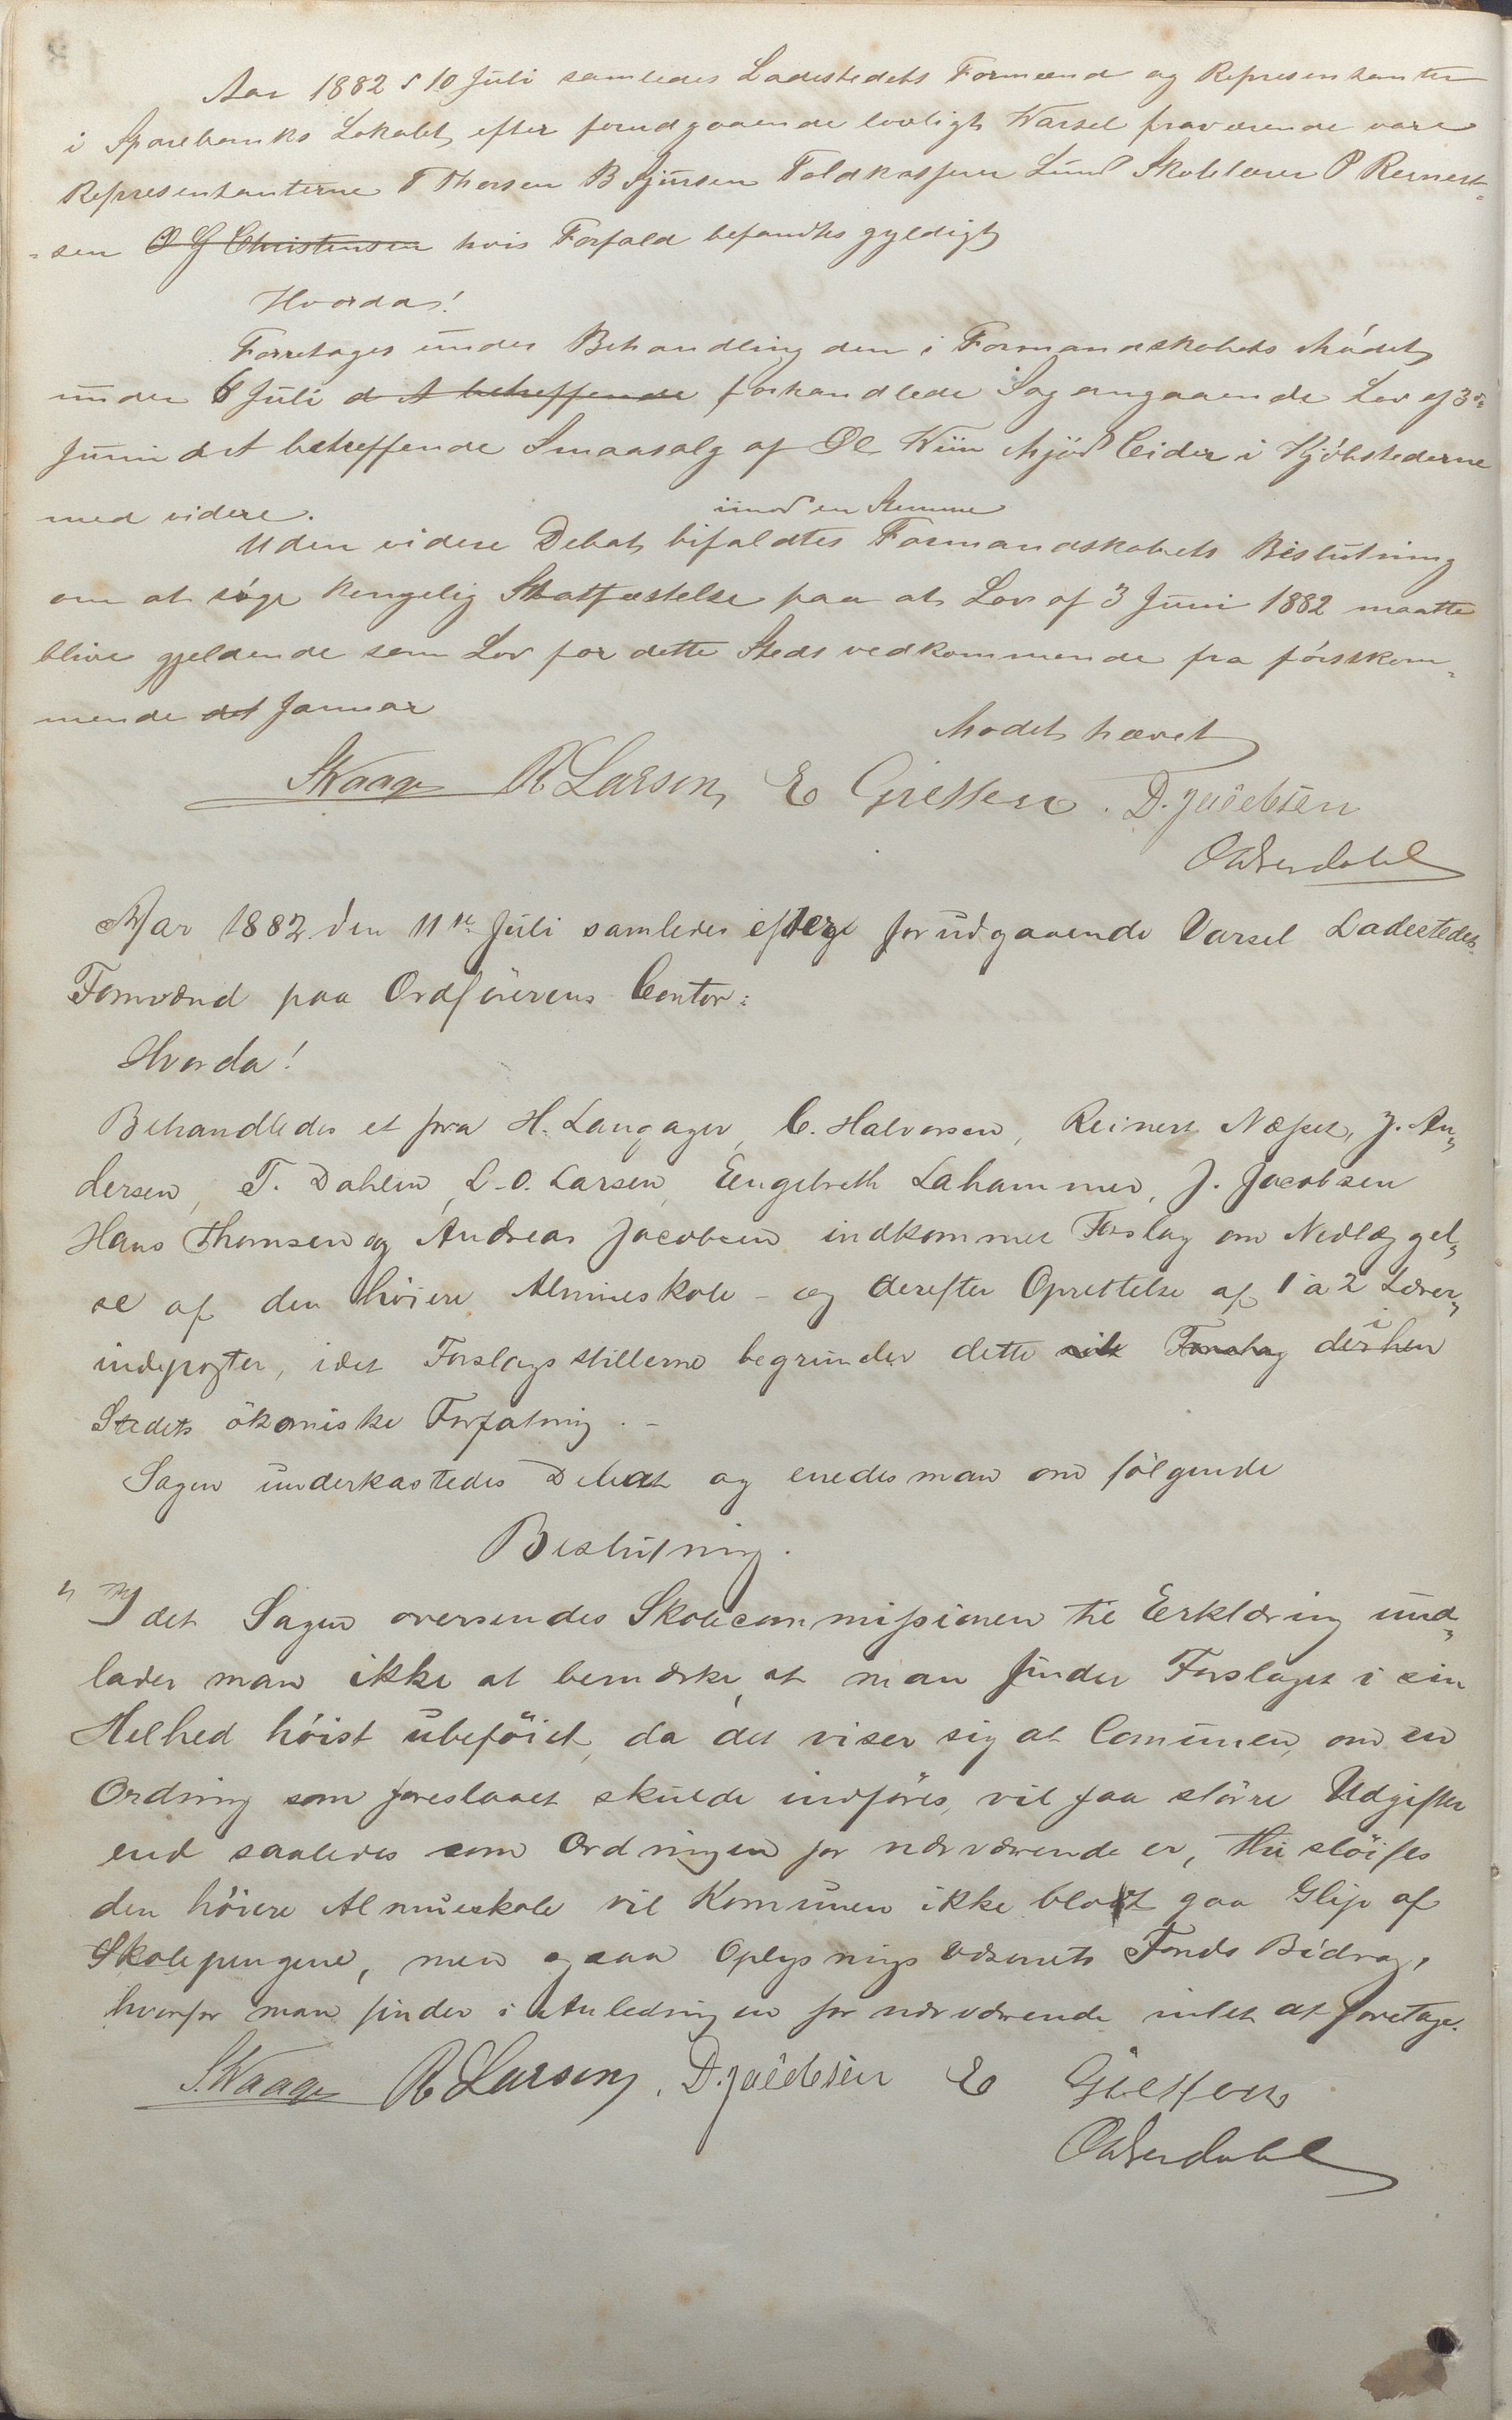 Aar 1882 d 10 Juli samledes Ladestedets Formænd og Representanter
i Sparebanks Lokalet efter forudgaaende lovligt Warsel fraværende vare
Representanterne T Thorsen B Sjursen Toldkasserer Lund Skolelærer P Reinert-
-sen O G Christensen hvis Forfald befandtes gyldigt
Hvorda!
Foretoges under Behandling den i Formandskabets Mödet
under 6 Juli d A betreffende forhandlede Sag angaaende Lov af 3die
Juni d A betreffende Smaasalg af Øl Wiin Mjöd Cider i Kjöbstederne
med videre.
imod en Stemme
Uden videre Debat bifaldtes Formandskabets Beslutning
om at söge kongelig Statfæstelse paa at Lov af 3 Juni 1882 maatte
blive gjeldende som Lov for dette Steds vedkommende fra förstkom-
mende det Januar
Modet hævet
S Waage R Larsen, E Gjessen. D. Jacobsen
O Aderdahl
Aar 1882 den 11te Juli samledes efter forudgaaende Varsel Ladestedets
Formænd paa Ordförerens Contor:
Hvorda!
Behandledes et fra H. Langager, C. Halvorsen, Reinert Næsset, J. An„
dersen, T. Dahlen, L. O. Larsen, Eengebreth Lahammer, J. Jacobsen
Hans Thomsen og Andreas Jacobsen indkommet Forslag om Nedlæggel„
se af den höiere Almueskole - og derefter Oprettelse af 1 a 2 Lærer„
indeposter, idet Forslagsstillerne begrunder dette Forslag i derhen
Stedets ökomiske Forfatning. -
Sagen underkastedes Debat og enedes man om fölgende
Beslutning.
„Idet Sagen oversendes Skolecommissionen til Erklæring und„
lader man ikke at bemærke, at man finder Forslaget i sin
Helhed höist ubeföiet, da det viser sig at Comunen, om en
Ordning som foreslaaet skulde indföres, vil faa större Udgifter
end saaledes som Ordningen for nærværende er, thi slöifes
den höiere Almueskole vil Komunen ikke blot gaa Glip af
Skolepengene, men ogsaa Oplysnings Væsenets Fonds Bidrag,
hvorfor man finder i Anledningen for nærværende intet at foretage.
S. Waage R Larsen, D. Jacobsen E Gjessen
O Aderdahl